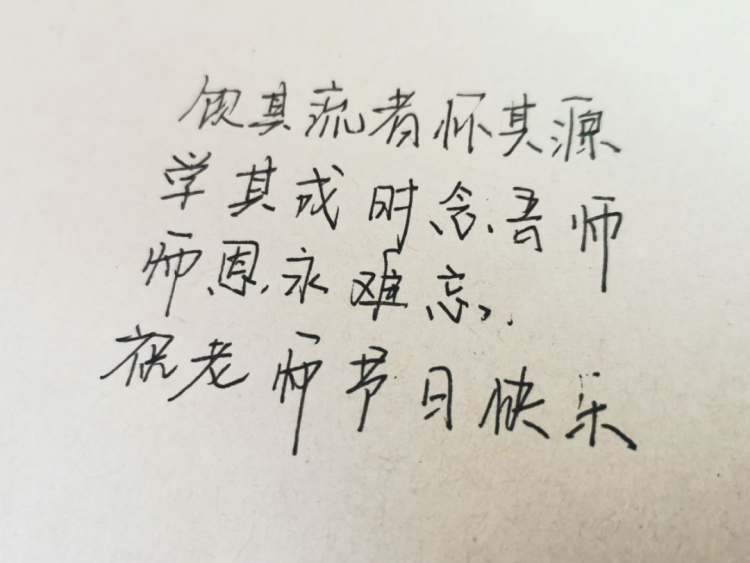 饮其流者怀其源
学其成时念吾师
师恩永难忘
祝老师节日快乐